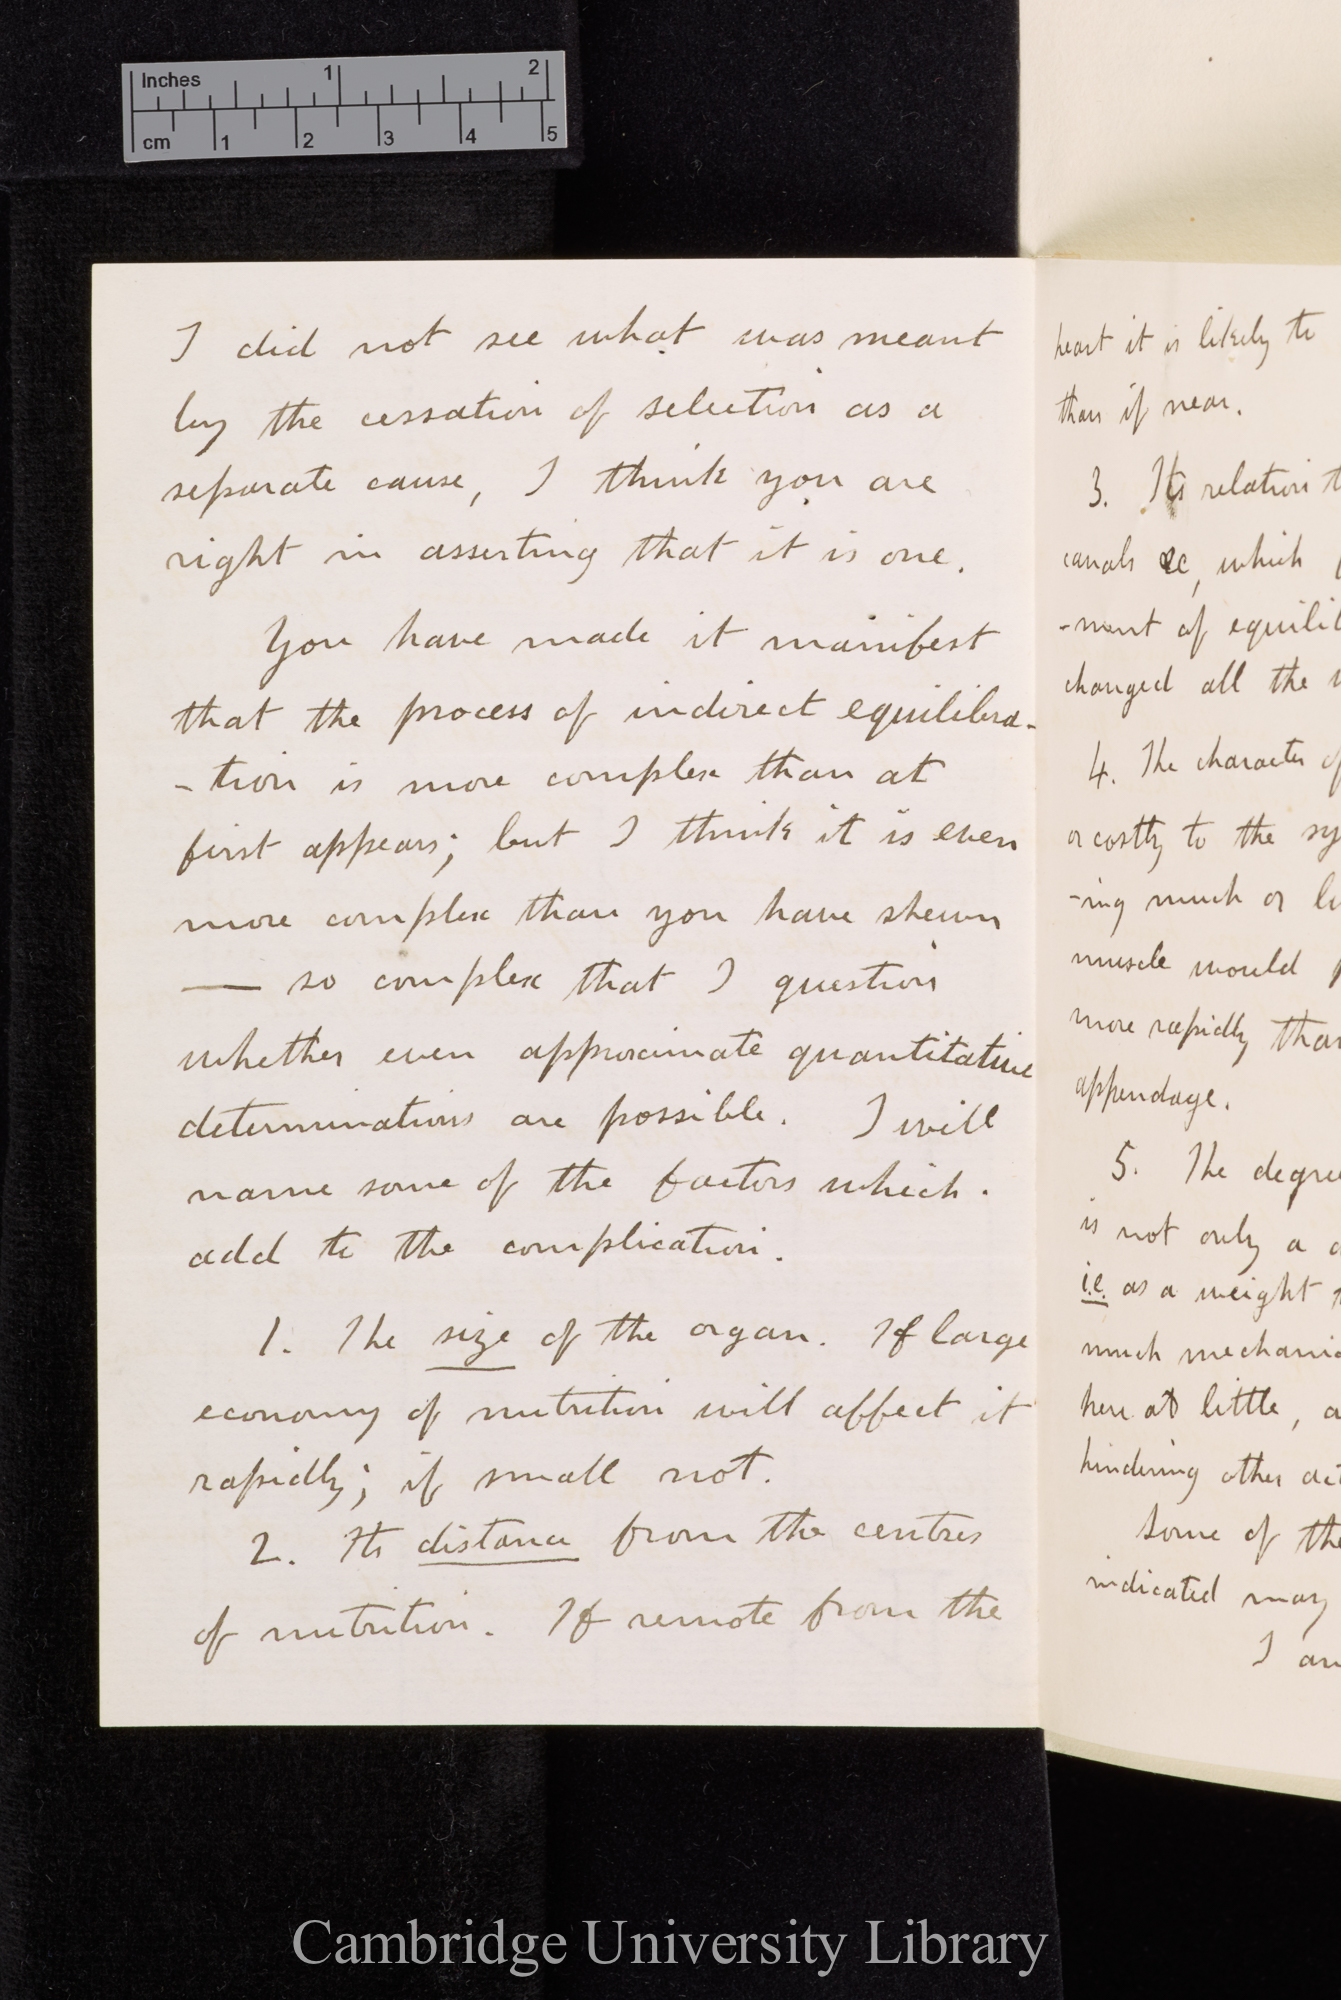 Inches 1 2
cm 1 2 3 4 5
I did not see what was meant
by the cessation of selection as a
separate cause, I think you are
right in asserting that it is one.
You have made it manifest
that the process of indirect equilibra-
-tion is more complex than at
first appears; but I think it is even
more complex than you have shewn
— so complex that I question
whether even approximate quantitative
determinations are possible. I will
name some of the factors which.
add to the complication.
1. The size of the organ. If large
economy of nutrition will affect it
rapidly; if small not.
2. Its distance from the centres
of nutrition. If remote from the
heart it is likely to
than if near.
3. Its relation t
canals &c, which
-ment of equilib
changed all the
4. The character of
or costly to the sy
-ing much or li
muscle would
more rapidly than
appendage.
5. The degree
is not only a
i.e. as a weight
much mechanic
here at little, a
hindering other act
Some of the
indicated may
I am
Cambridge University Library